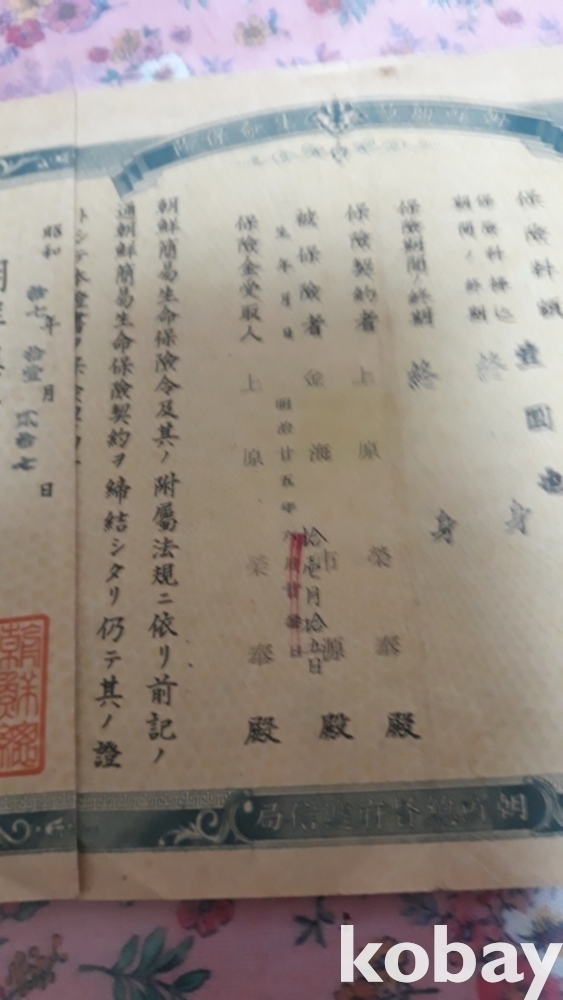 朝鮮簡易生命保險
保險料額 壹圓也
保險料拂込期間ノ終期 終身
保險期間ノ終期 終身
保險契約者 上原榮奉殿
被保險者 金海市源殿
生年月日 明治廿五年
拾壱月拾五日
保險金受取人 上原榮奉殿
朝鮮簡易生命保險令及其ノ附屬法規ニ依リ前記ノ
通朝鮮簡易生命保險契約ヲ締結シタリ仍テ其ノ證
昭和拾七年拾壹月貳拾七日
朝鮮總
朝鮮總督府遞信局
kobay